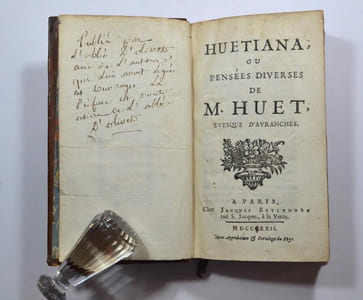 Publié par
l'abbé D'olivet
ami de L'auteur,
qui lui avoit légué
cet ouvrage. La
Préface est toute
entière de L'abbé
D'olivet
HUETIANA,
OU
PENSÉES DIVERSES
DE
M. HUET,
EVESQUE D'AVRANCHES.
A PARIS,
Chez JACQUES ESTIENNE,
ruë S. Jacques, à la Vertu.
MDCCXXII.
Avec Approbation & Privilege du Roy.